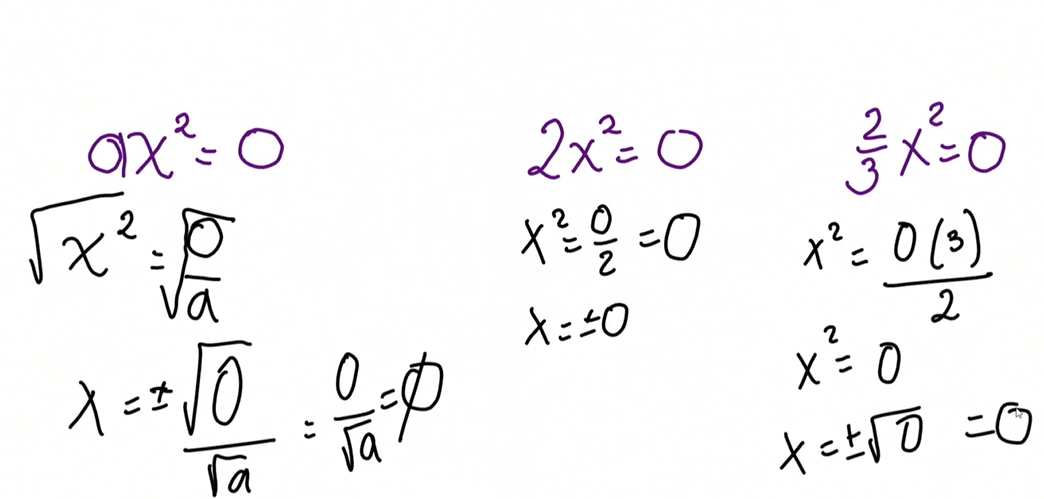 ax² = 0
√x² = √0/√a
x = ± √0/√a = 0/√a = ∅
2x² = 0
x² = 0/2 = 0
x = ±0
2/3 x² = 0
x² = 0(3)/2
x² = 0
x = ±√0 = 0